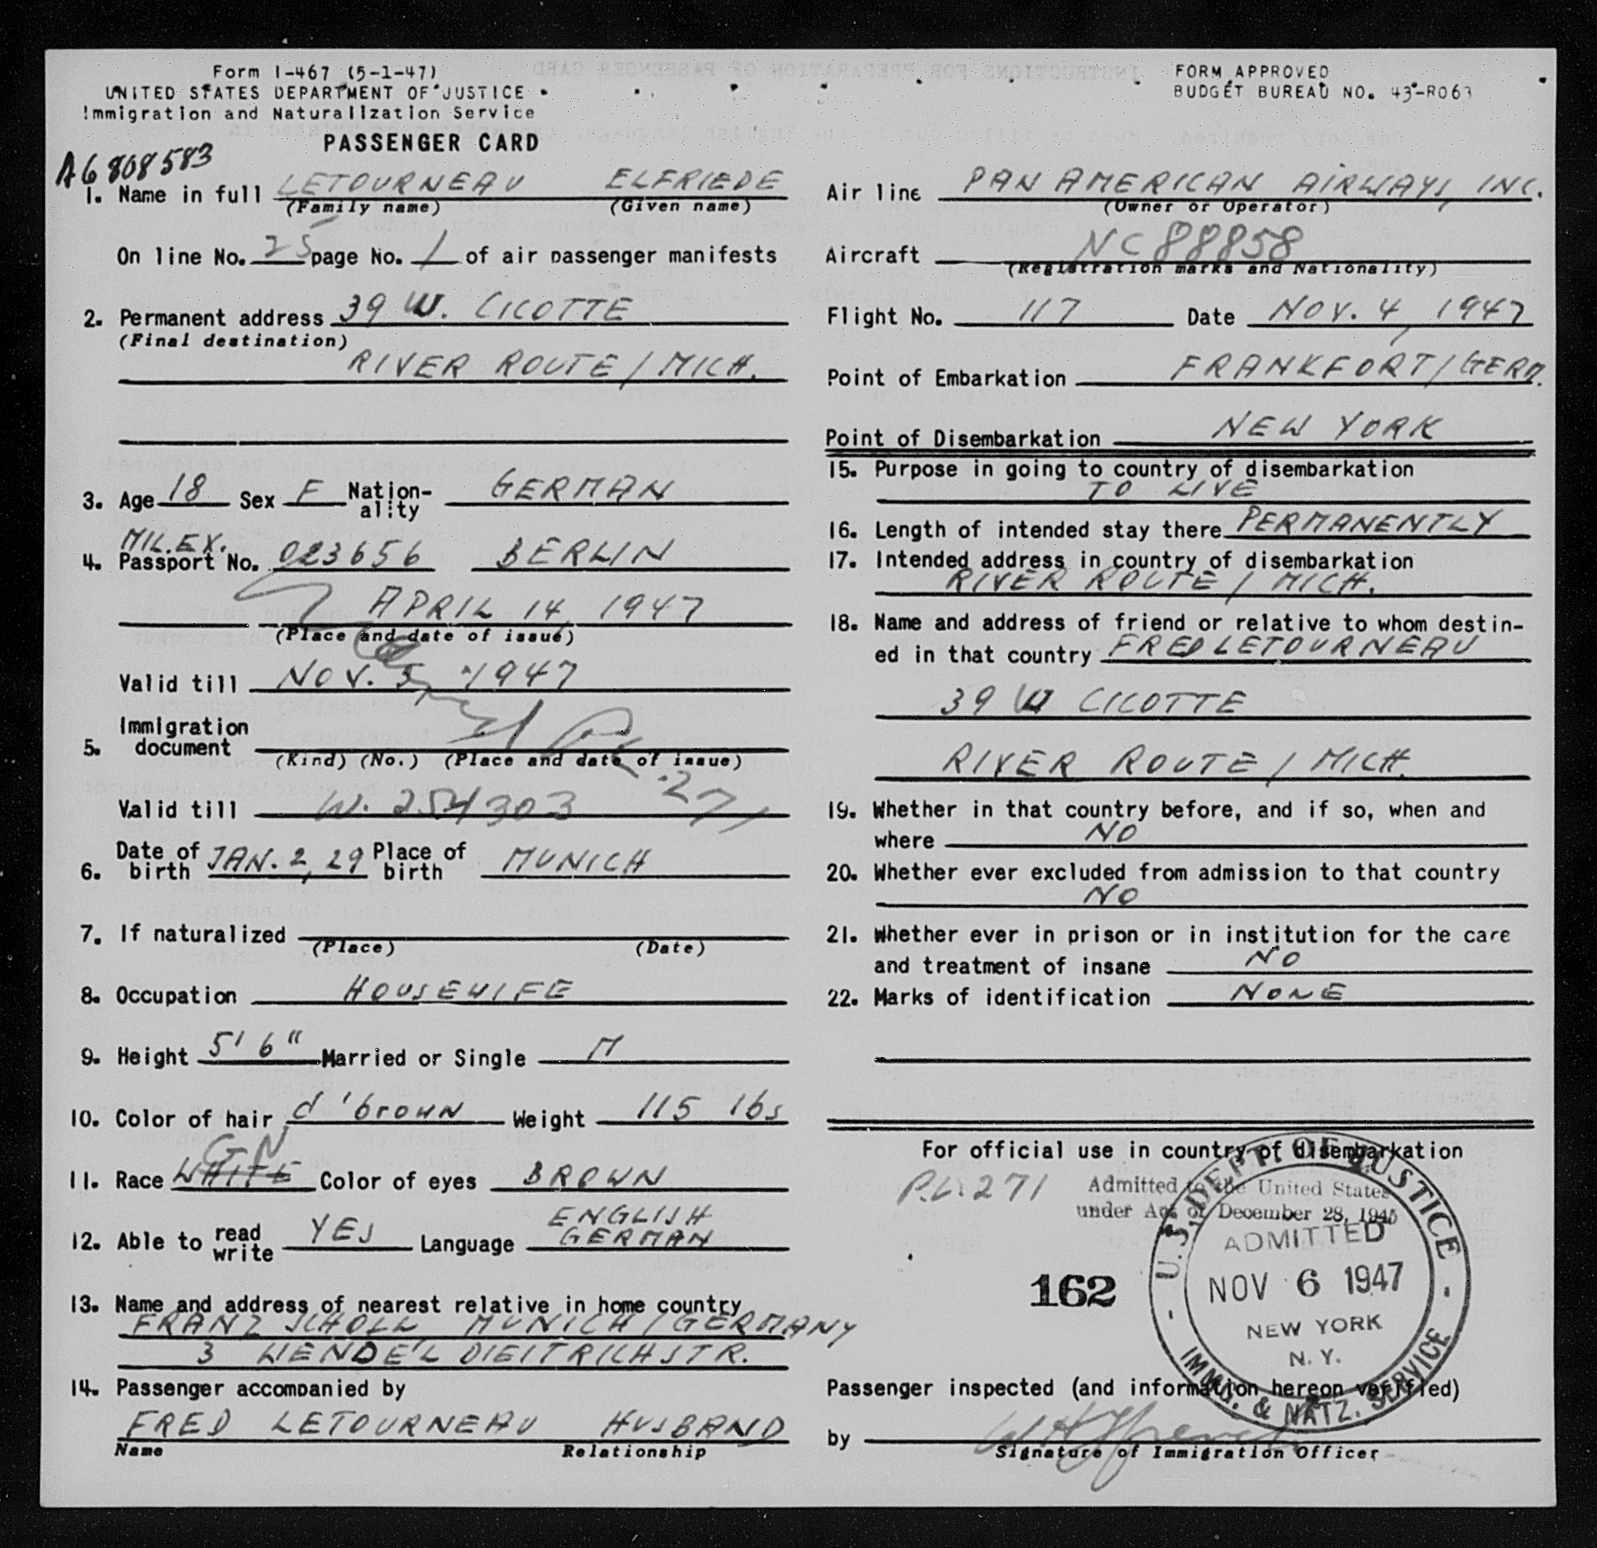 Form I-467 (5-1-47)
UNITED STATES DEPARTMENT OF JUSTICE
Immigration and Naturalization Service
PASSENGER CARD
FORM APPROVED
BUDGET BUREAU NO. 43-R063
A6 808583
1. Name in full LETOURNEAU ELFRIEDE
(Family name) (Given name)
On line No. 25 page No. 1 of air passenger manifests
2. Permanent address 39 W. CICOTTE
(Final destination)
RIVER ROUTE / MICH.
3. Age 18 Sex F Nation-ality GERMAN
MIL.EX.
4. Passport No. 023656 BERLIN
APRIL 14, 1947
(Place and date of issue)
Valid till NOV. 5, 1947
5. Immigration document
(Kind) (No.) (Place and date of issue)
Valid till W. 254303 27
6. Date of birth JAN. 2, 29 Place of birth MUNICH
7. If naturalized
(Place) (Date)
8. Occupation HOUSEWIFE
9. Height 5' 6" Married or Single M
10. Color of hair d'brown Weight 115 lbs
GN
11. Race WHITE Color of eyes BROWN
12. Able to read write YES Language ENGLISH GERMAN
13. Name and address of nearest relative in home country
FRANZ SCHOLL MUNICH / GERMANY
3 WENDEL DIEITRICHSTR.
14. Passenger accompanied by
FRED LETOURNEAU HUSBAND
Name Relationship
Air line PAN AMERICAN AIRWAYS, INC.
(Owner or Operator)
Aircraft NC88858
(Registration marks and Nationality)
Flight No. 117 Date NOV. 4, 1947
Point of Embarkation FRANKFORT / GERM.
Point of Disembarkation NEW YORK
15. Purpose in going to country of disembarkation
TO LIVE
16. Length of intended stay there PERMANENTLY
17. Intended address in country of disembarkation
RIVER ROUTE / MICH.
18. Name and address of friend or relative to whom destin-
ed in that country FRED LETOURNEAU
39 W CICOTTE
RIVER ROUTE / MICH.
19. Whether in that country before, and if so, when and
where NO
20. Whether ever excluded from admission to that country
NO
21. Whether ever in prison or in institution for the care
and treatment of insane NO
22. Marks of identification NONE
For official use in country of disembarkation
P.L. 271
Admitted to the United States
under Act of December 28, 1945
162
U.S. DEPT. OF JUSTICE
ADMITTED
NOV 6 1947
NEW YORK
N. Y.
IMM. & NATZ. SERVICE
Passenger inspected (and information hereon verified)
by
Signature of Immigration Officer